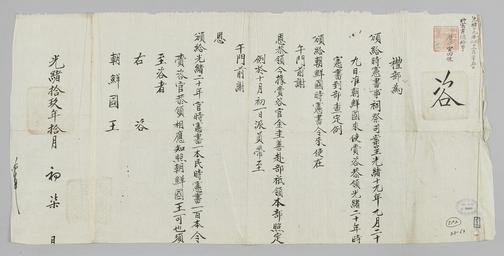 咨
禮部為
頒給時憲書事祠祭司案呈光緒十九年九月二十
九日准朝鮮國來使賫咨恭領光緒二十年時
憲書到部查定例
頒給朝鮮國時憲書令來使在
午門前謝
恩恭領今據賫咨官金圭善赴部祗領本部照定
例於十月初一日派員帶至
午門前謝
恩
頒給光緒二十年官時憲書一本民時憲書一百本令
賫咨官恭領相應知照朝鮮國王可也須
至咨者
右咨
朝鮮國王
光緒拾玖年拾月初柒日